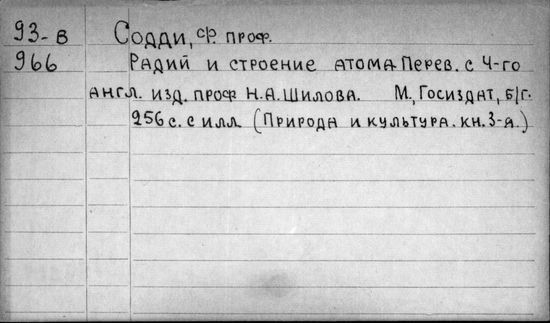 93-в Содди, Ф. проф.
966 Радий и строение атома. Перев. с 4-го
англ. изд. проф Н.А. Шилова. М., Госиздат, б/г.
256 с. с илл. (Природа и культура. кн. 3-я.)